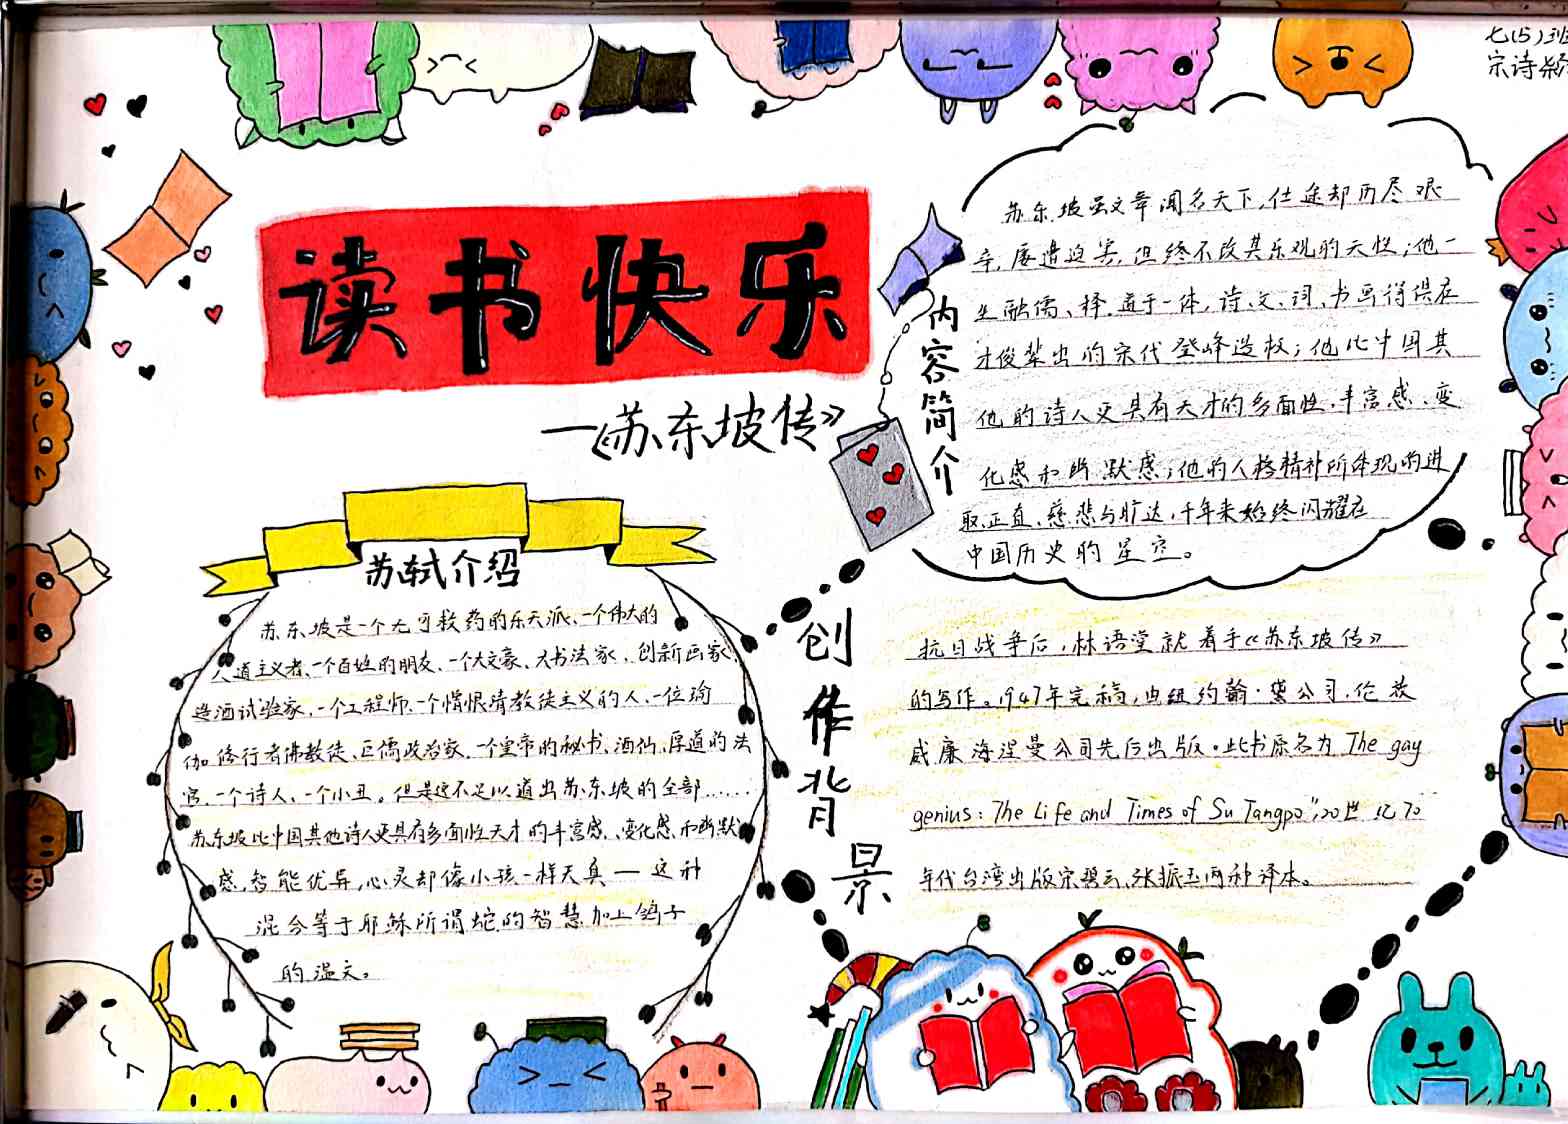 七(5)班
宋诗
读书快乐
—《苏东坡传》
内容简介
苏东坡虽文章闻名天下,仕途却历尽艰
辛,屡遭迫害,但终不改其乐观的天性;他一
生融儒、释、道于一体,诗、文、词、书画得俱在
才俊辈出的宋代登峰造极;他比中国其
他的诗人更具有天才的多面性、丰富感、变
化感和幽默感;他的人格精神所体现的进
取、正直、慈悲与旷达,千年来始终闪耀在
中国历史的星空。
苏轼介绍
苏东坡是一个无可救药的乐天派、一个伟大的
人道主义者、一个百姓的朋友、一个大文豪、大书法家、创新画家、
造酒试验家、一个工程师、一个憎恨清教徒主义的人、一位瑜
伽修行者佛教徒、巨儒政治家、一个皇帝的秘书、酒仙、厚道的法
官、一个诗人、一个小丑。但是这不足以道出苏东坡的全部……
苏东坡比中国其他诗人更具有多面性天才的丰富感、变化感和幽默
感,智能优异,心灵却像小孩一样天真—这种
混合等于耶稣所谓蛇的智慧加上鸽子
的温文。
创作背景
抗日战争后,林语堂就着手《苏东坡传》
的写作。1947年完稿,由纽约翰·黛公司,伦敦
威廉海涅曼公司先后出版。此书原名为The gay
genius: The Life and Times of Su Tangpo",20世纪70
年代台湾出版宋碧云、张振玉两种译本。